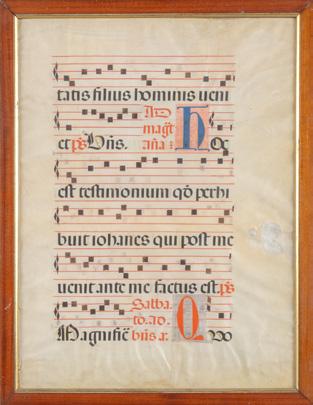 tatis filius hominis veni
Ad
magt̄
et ps Dn̄s. an̄a : Hoc
est testimonium qd̄ perhi
buit iohanes qui post me
venit ante me factus est. ps
Sabba
to. ad.
Magnific̄ bn̄s a: Quo